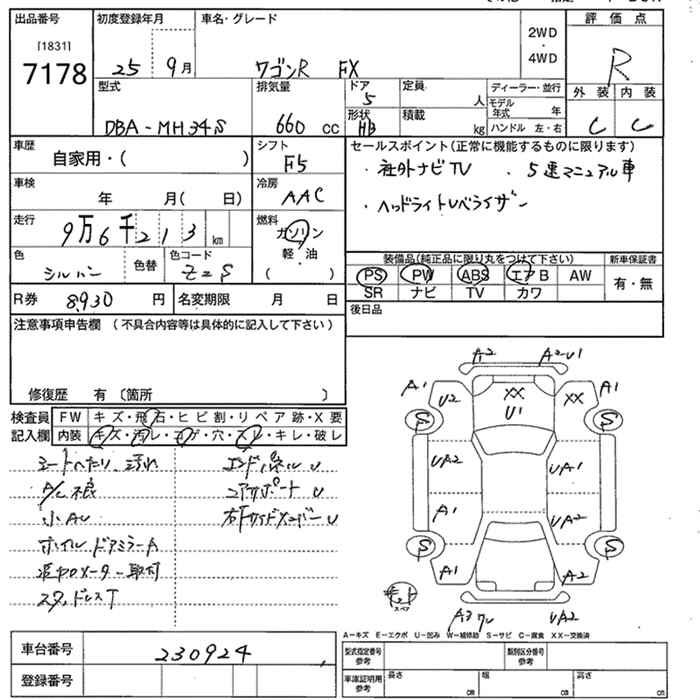 出品番号 初度登録年月 車名・グレード 評価点
[1831]
7178
25 9月 ワゴンR FX
2WD
・
4WD
R
型式 排気量 ドア 定員 ディーラー・並行 外装 内装
5 人 モデル年式 年
DBA-MH34S 660 cc 形状 HB 積載 kg ハンドル 左・右 C C
車歴 シフト セールスポイント(正常に機能するものに限ります)
自家用・( ) F5 ・社外ナビTV ・5速マニュアル車
車検 冷房
年 月( 日) AAC ・ヘッドライトレベライザー
走行 燃料
9万6千213 km ガソリン
軽・油
( )
色 色替 色コード
シルバー Z2S
装備品(純正品に限り丸をつけて下さい) 新車保証書
PS PW ABS エアB AW 有・無
SR ナビ TV カワ
R券 8,930 円 名変期限 月 日
後日品
注意事項申告欄 (不具合内容等は具体的に記入して下さい)
修復歴 有 〔箇所 〕
検査員 FW キズ・飛石・ヒビ割・リペア跡・X要
記入欄 内装 キズ・汚レ・コゲ・穴・スレ・キレ・破レ
シートへたり、汚れ エンドパネルU
A/C不良 コアサポートU
小AU 右Fサイドメンバー U
ホイル ドアミラーA
追加メーター取付
スタッドレスT
A2 A2-U1
A1 U2 XX U1 XX A1
S S
UA2 UA1
A1 UA2
S S
A1 A2
スペア
A3ワレ UA2
A－キズ E－エクボ U－凹み W－補修跡 S－サビ C－腐食 XX－交換済
車台番号 230924
登録番号
型式指定番号 参考 類別区分番号 参考
車庫証明用 参考 長さ cm 幅 cm 高さ cm